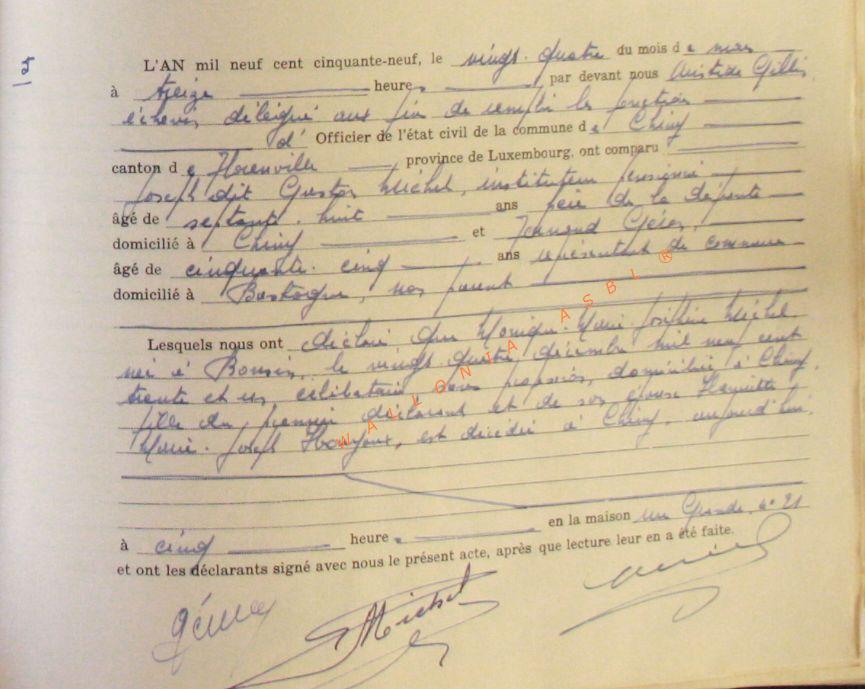 5
L'AN mil neuf cent cinquante-neuf, le vingt-quatre du mois de mars
à treize heure, par devant nous Aristide Gillis
échevin délégué aux fin de remplir les fonctions
d' Officier de l'état civil de la commune de Chiny
canton de Florenville, province de Luxembourg, ont comparu
Joseph dit Gustave Michel, instituteur pensionné
âgé de septante-huit ans père de la défunte
domicilié à Chiny et Fernand
âgé de cinquante-cinq ans représentant de commerce
domicilié à Bastogne, non parent
Lesquels nous ont déclaré que Monique-Marie-Joséphine Michel
née à le vingt quatre décembre mil neuf cent
trente et un, célibataire, sans profession, domiciliée à Chiny,
fille du premier déclarant et de son épouse Henriette
Marie-Joseph est décédée à Chiny, aujourd'hui
à cinq heure en la maison rue Grande, n° 21
et ont les déclarants signé avec nous le présent acte, après que lecture leur en a été faite.
Michel
WALLONIA ASBL ®